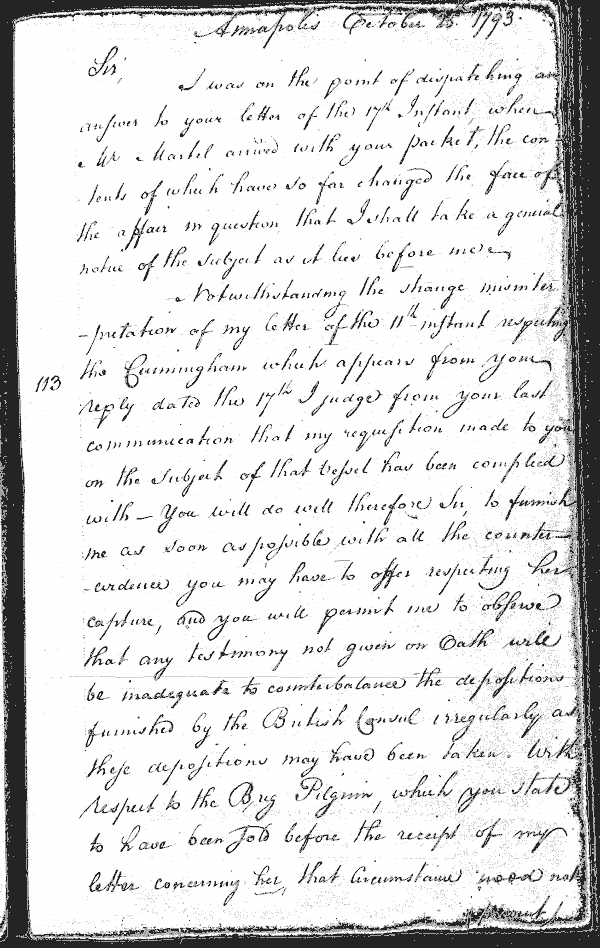 Annapolis October 25th 1793.
Sir,
I was on the point of dispatching an
answer to your letter of the 17th Instant when
Mr Martel arrived with your packet, the con
tents of which have so far changed the face of
the affair in question that I shall take a general
notice of the subject as it lies before me
Notwithstanding the strange misinter
-pretation of my letter of the 11th instant respecting
113 the Cunningham which appears from your
reply dated the 17th I judge from your last
communication that my requisition made to you
on the subject of that vessel has been complied
with — You will do well therefore Sir, to furnish
me as soon as possible with all the counter-
-evidence you may have to offer respecting her
capture, and you will permit me to observe
that any testimony not given on Oath will
be inadequate to counterbalance the depositions
furnished by the British Consul irregularly as
these depositions may have been taken. With
respect to the Brig Pilgrim, which you state
to have been sold before the receipt of my
letter concerning her, that Circumstance need not
prevent